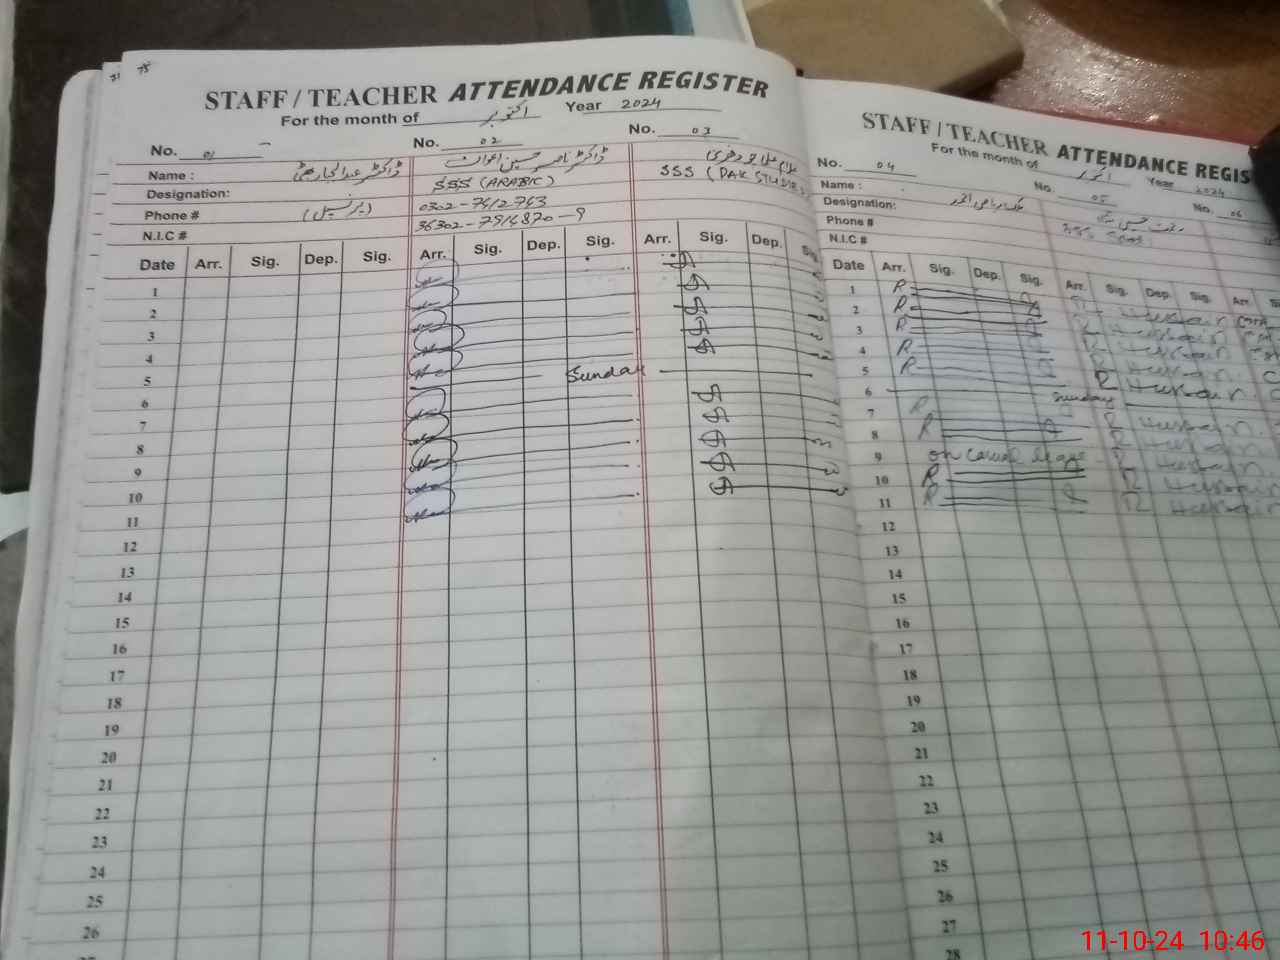 STAFF / TEACHER ATTENDANCE REGISTER
For the month of اکتوبر Year 2024
No. 01 No. 02 No. 03
Name : ڈاکٹر ڈاکٹر ناصر حسین اعوان
Designation: SSS (ARABIC) SSS (PAK STUDIES)
Phone # (پرنسپل) 0302-7412743
N.I.C # 36302-7914870-9
Date Arr. Sig. Dep. Sig. Arr. Sig. Dep. Sig. Arr. Sig. Dep. Sig.
1
2
3
4
5
Sunday
6
7
8
9
10
11
12
13
14
15
16
17
18
19
20
21
22
23
24
25
26
STAFF / TEACHER ATTENDANCE REGIS
For the month of اکتوبر Year 2024
No. 04 No. 05 No. 06
Name :
Designation:
Phone #
N.I.C #
Date Arr. Sig. Dep. Sig. Arr. Sig. Dep. Sig. Arr.
1 R R Hussain
2 R R Hussain
3 R R Hussain
4 R R Hussain
5 R R Hussain
6 Sunday
7 R R Hussain
8 R R Hussain
9 on casual leave R Hussain
10 R R Hussain
11 R R Hussain
12
13
14
15
16
17
18
19
20
21
22
23
24
25
26
27
28
11-10-24 10:46